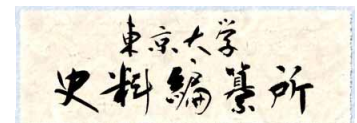 東京大学
史料編纂所